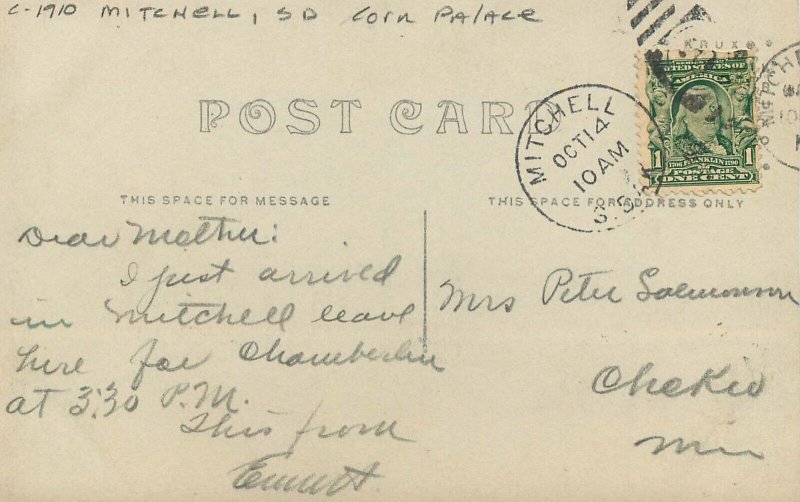 C-1910 MITCHELL, SD Corn Palace
KRUX
POST CARD
UNITED STATES OF
AMERICA
1706 FRANKLIN 1790
POSTAGE
1 ONE CENT 1
MITCHELL
OCT 14
10 AM
S.D.
THIS SPACE FOR MESSAGE
THIS SPACE FOR ADDRESS ONLY
Dear Mother:
I just arrived
in Mitchell leave
here for Chamberlin
at 3:30 P.M.
This from
Emmett
Mrs Peter Salmonson
Chokio
Min